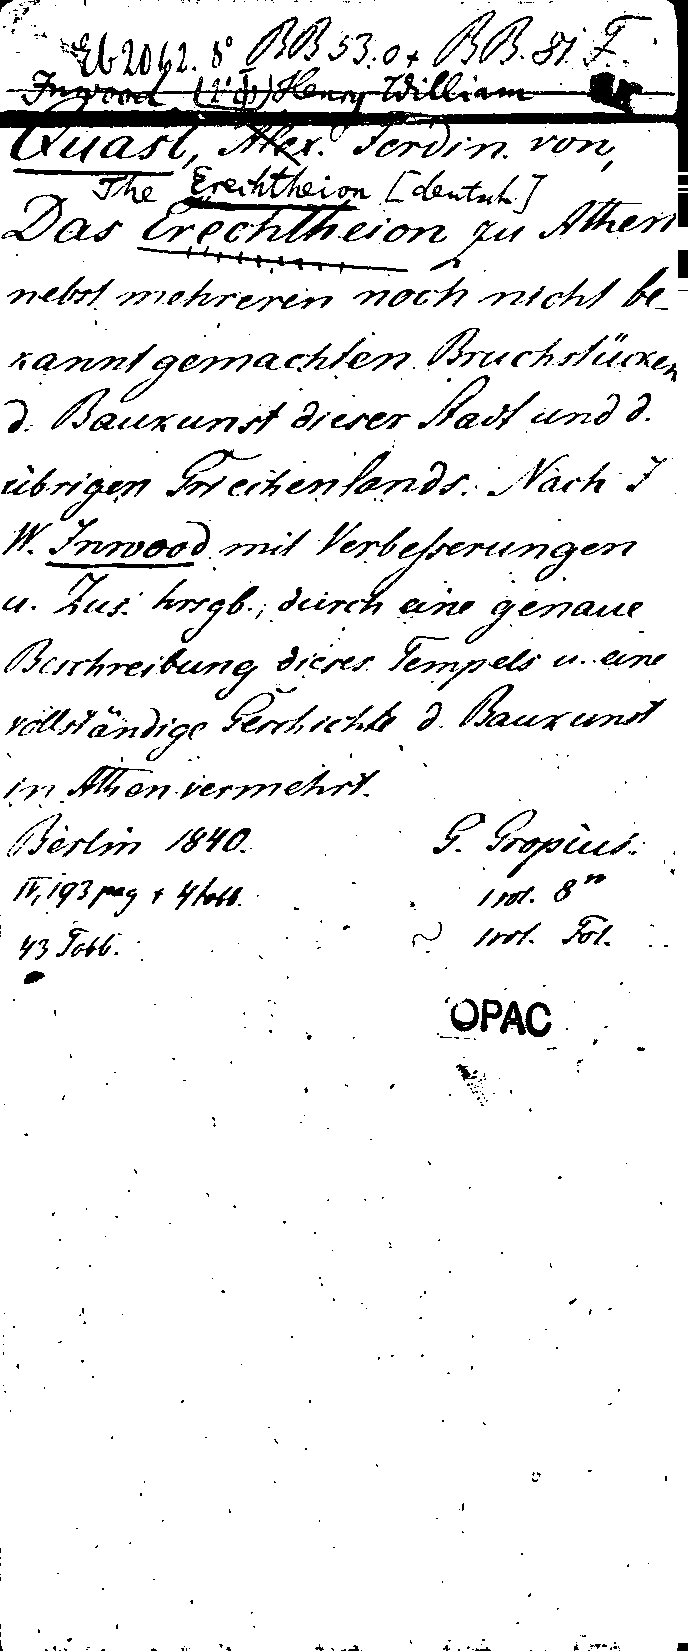 Eb 2062. 8° BB 53.0 + BB. 81. F.
Inwood Henry William
Quast, Alex. Ferdin. von,
The Erechtheion [deutsch.]
Das Erechtheion zu Athen
nebst mehreren noch nicht be-
kannt gemachten Bruchstücken
d. Baukunst dieser Stadt und d.
übrigen Griechenlands. Nach I
W. Inwood mit Verbesserungen
u. Zus. hrsgb., durch eine genaue
Beschreibung dieses Tempels u. eine
vollständige Geschichte d. Baukunst
in Athen vermehrt.
Berlin 1840. G. Gropius.
IV, 193 pag + 4 tabb. 1 vol. 8°
43 Tabb. 1 vol. Fol.
OPAC